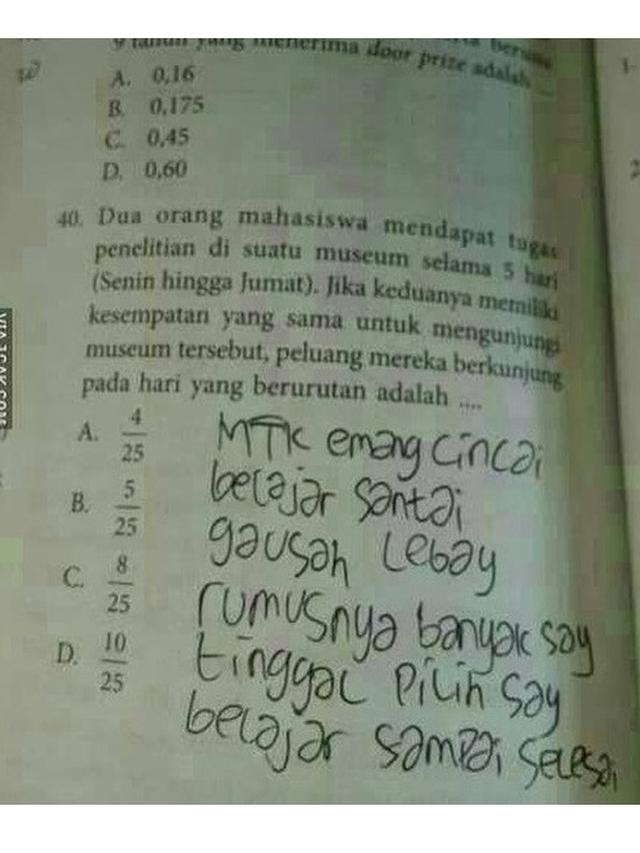 9 tahun yang menerima door prize adalah ....
A. 0,16
B. 0,175
C. 0,45
D. 0,60
40. Dua orang mahasiswa mendapat tugas
penelitian di suatu museum selama 5 hari
(Senin hingga Jumat). Jika keduanya memiliki
kesempatan yang sama untuk mengunjungi
museum tersebut, peluang mereka berkunjung
pada hari yang berurutan adalah ....
A. 4/25
B. 5/25
C. 8/25
D. 10/25
MTK emang cincai
belajar santai
gausah lebay
rumusnya banyak say
tinggal pilih say
belajar sampai selesai